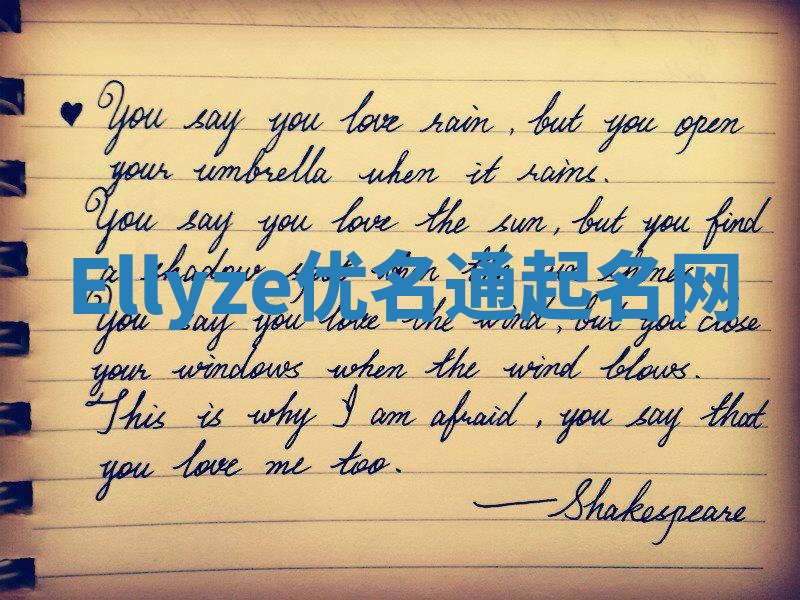 ♥ You say you love rain, but you open
your umbrella when it rains.
You say you love the sun, but you find
a shadow spot when the sun shines.
Ellyze优名通起名网
You say you love the wind, but you close
your windows when the wind blows.
This is why I am afraid, you say that
you love me too.
—Shakespeare